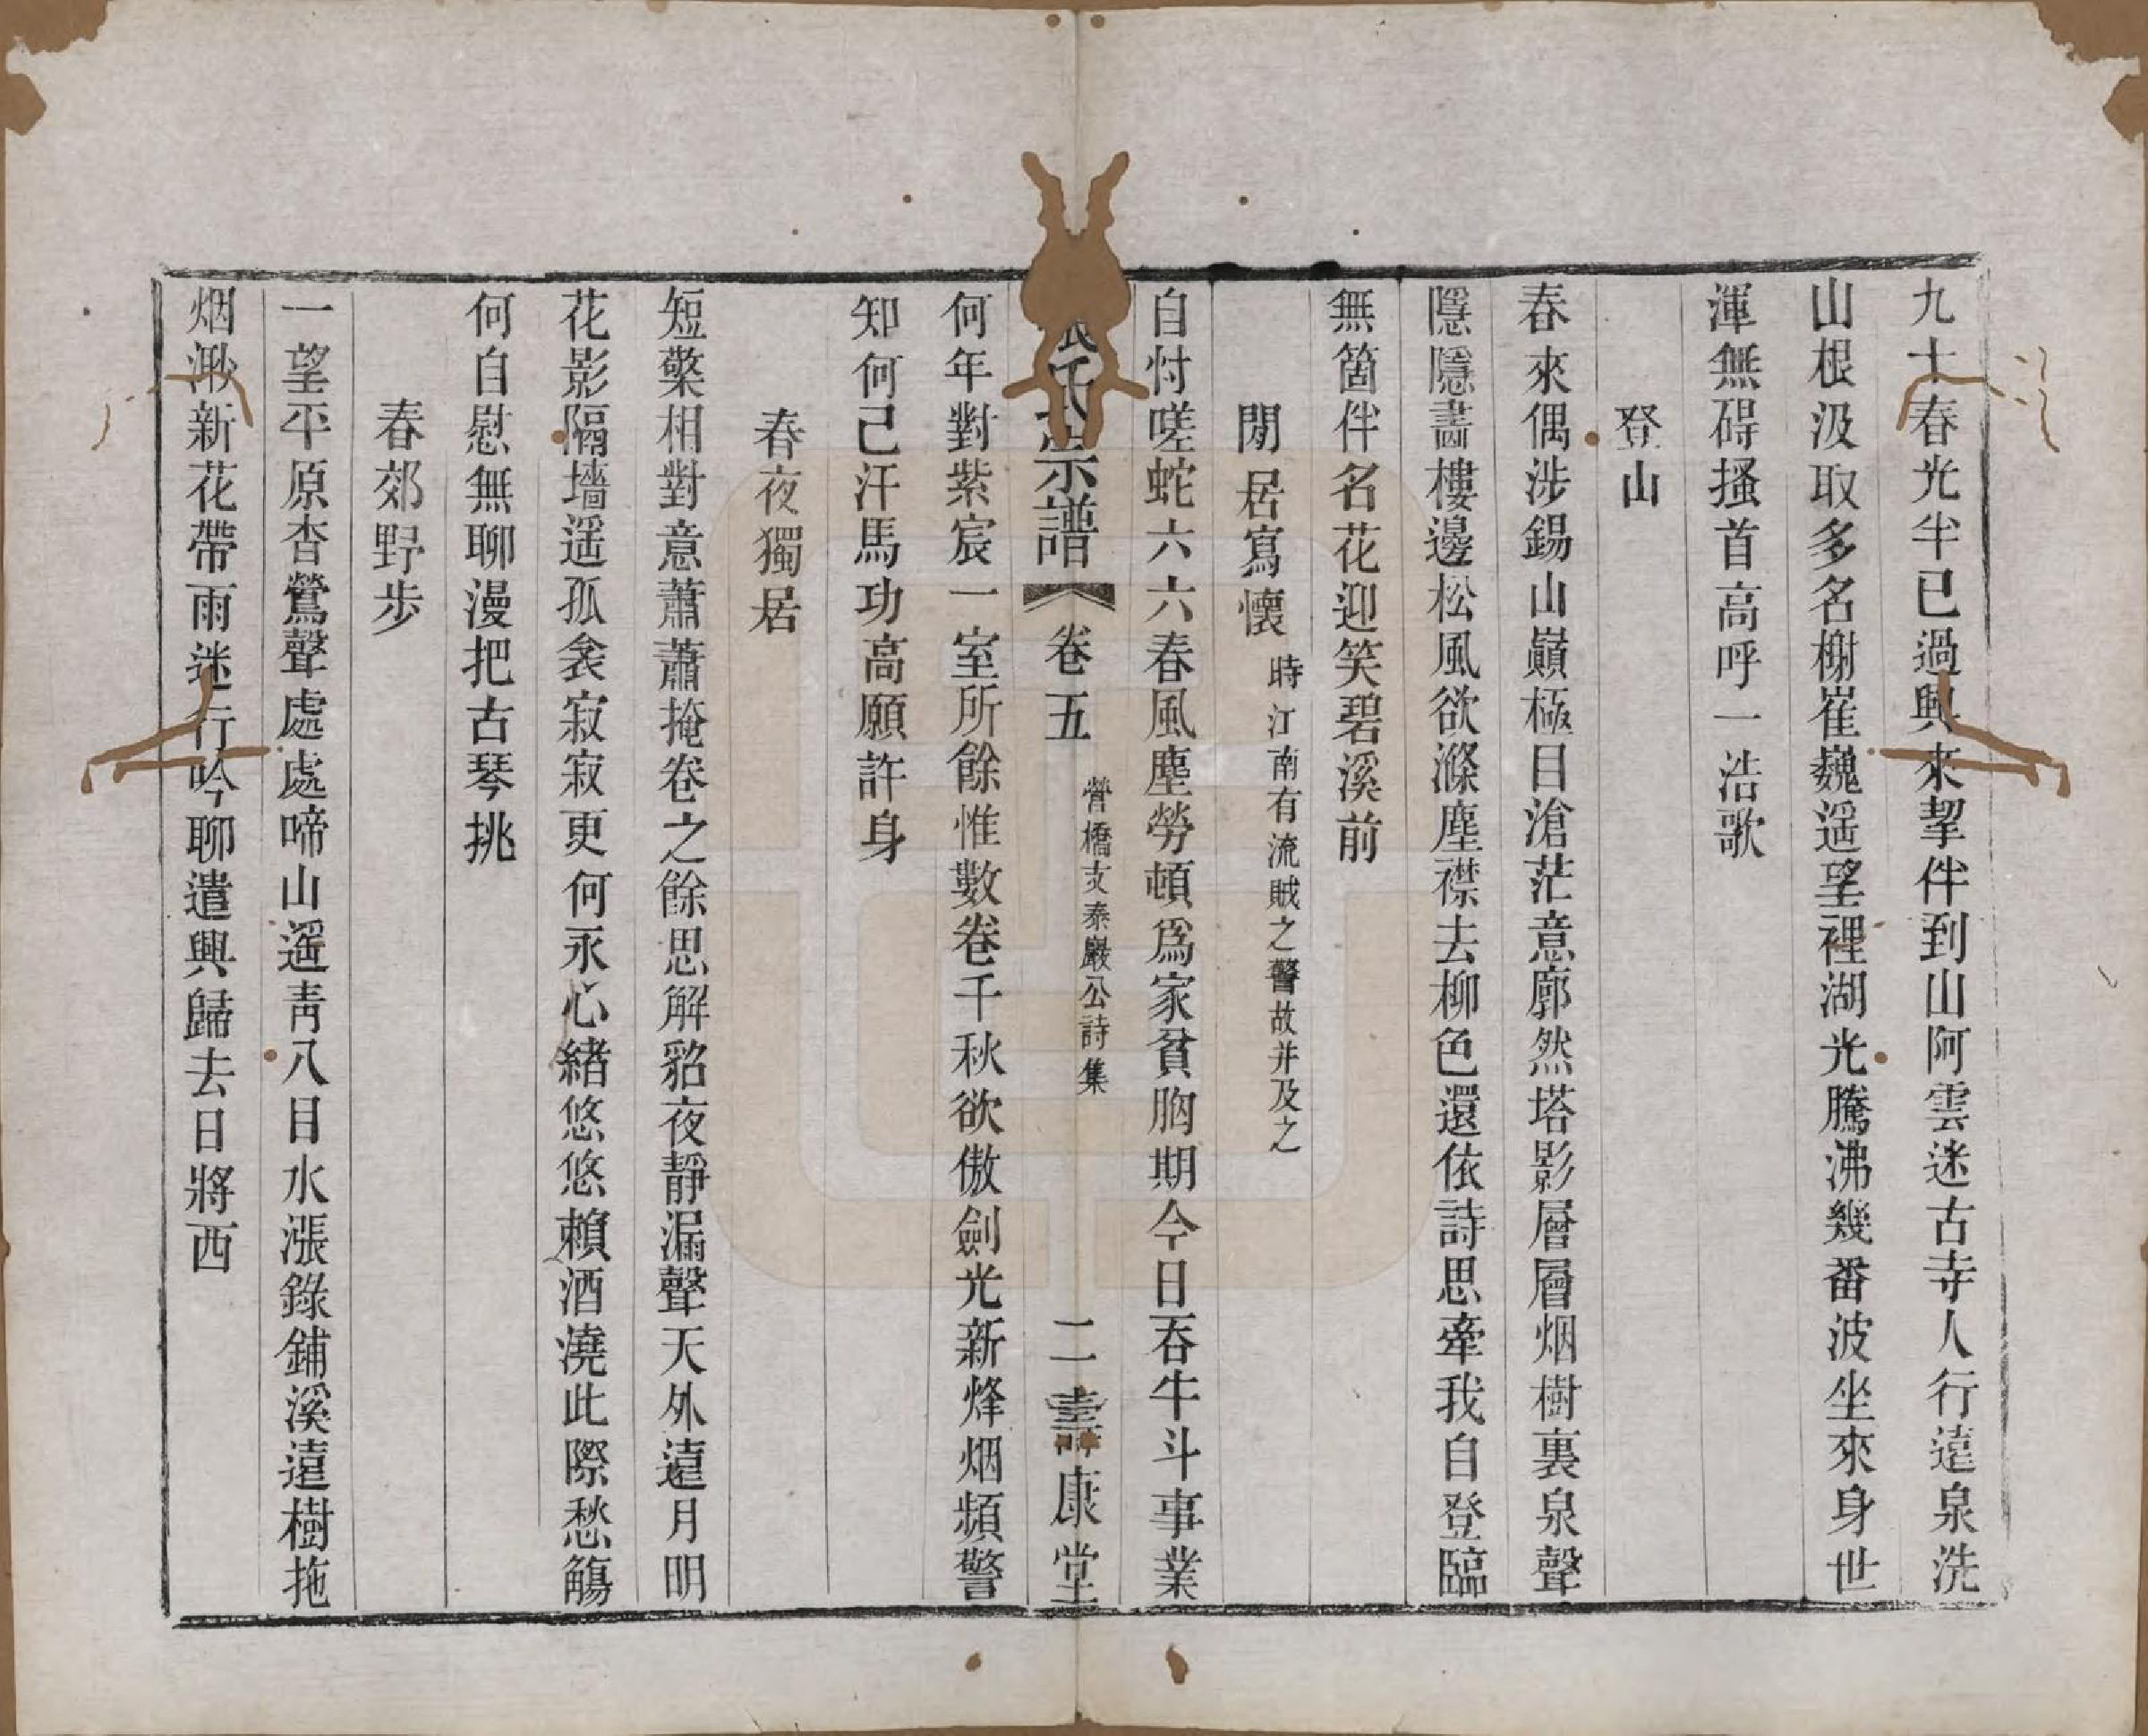 九十春光半已過興來挈伴到山阿雲迷古寺人行遠泉洗
山根汲取多名榭崔巍遥望裡湖光騰沸幾番波坐來身世
渾無碍搔首高呼一浩歌
登山
春來偶涉錫山巔極目滄茫意廓然塔影層層烟樹裏泉聲
隱隱畵樓邊松風欲滌塵襟去柳色還依詩思牽我自登臨
無箇伴名花迎笑碧溪前
閒居寫懷 時江南有流賊之警故并及之
自忖嗟蛇六六春風塵勞頓爲家貧胸期今日吞牛斗事業
氏宗譜 卷五 營橋支泰巖公詩集 二 壽康堂
何年對紫宸一室所餘惟數卷千秋欲傲劍光新烽烟頻警
知何己汗馬功高願許身
春夜獨居
短檠相對意蕭蕭掩卷之餘思解貂夜靜漏聲天外遠月明
花影隔墻遥孤衾寂寂更何永心緒悠悠賴酒澆此際愁觴
何自慰無聊漫把古琴挑
春郊野步
一望平原杳鶯聲處處啼山遥青八目水漲錄鋪溪遠樹拖
烟渺新花帶雨迷行吟聊遣興歸去日將西